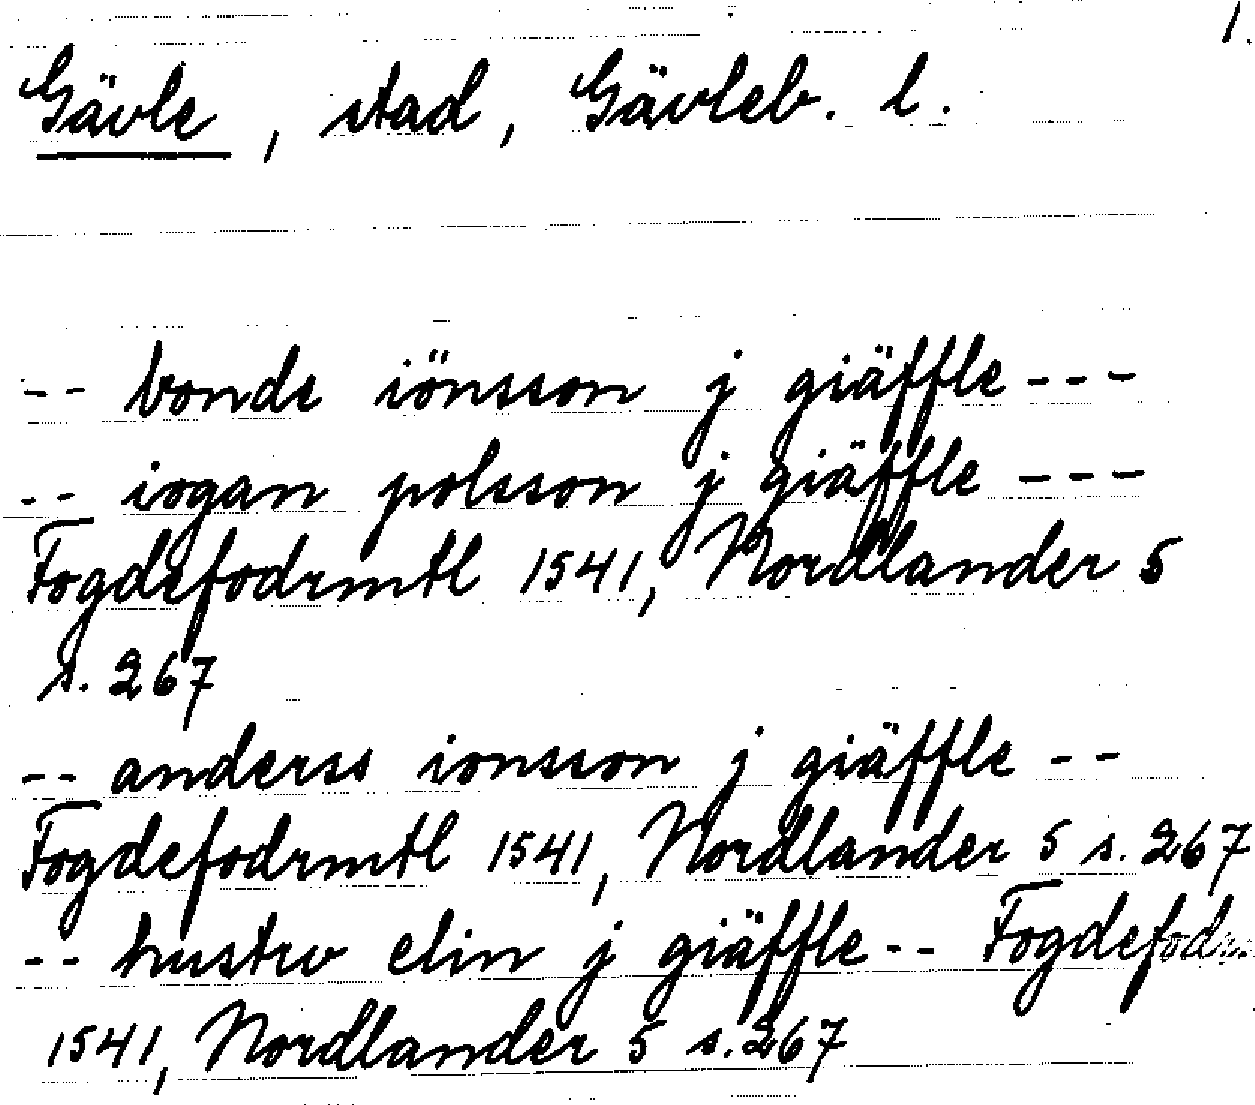 1.
Gävle, stad, Gävleb. l.
-- bonde iönsson j giäffle ---
-- iogan polsson j giäffle ---
Fogdefodrmtl 1541, Nordlander 5
s. 267
-- anderss ionsson j giäffle --
Fogdefodrmtl 1541, Nordlander 5 s. 267
-- hustrv elin j giäffle -- Fogdefodr.
1541, Nordlander 5 s. 267